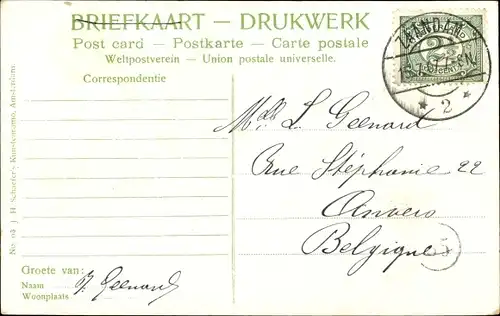 BRIEFKAART — DRUKWERK
Post card — Postkarte — Carte postale
Weltpostverein — Union postale universelle.
Correspondentie
ZAANDAM
2
Mlle L. Geenard
Rue Stéphanie 22
Anvers
Belgique
Groete van:
Naam
Woonplaats
J. Geenard
J. H. Schaefer's Kunstchromo, Amsterdam.